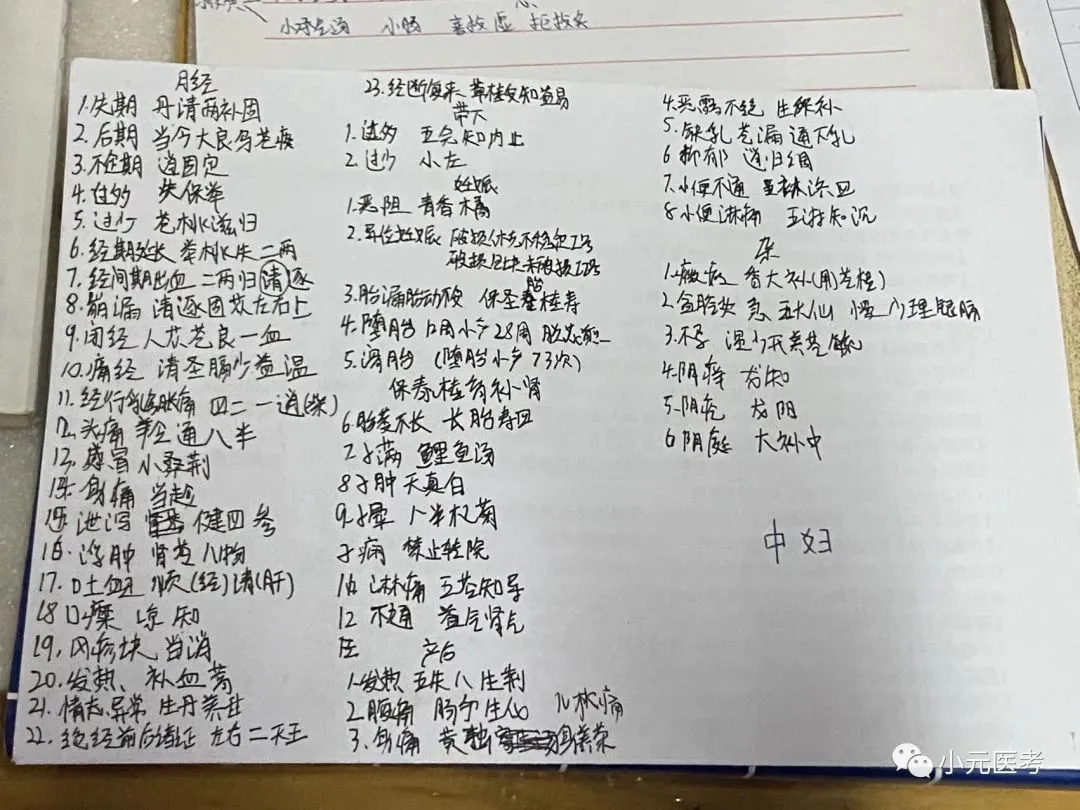 小承气汤 小肠
月经
1.先期 丹清两补固
2.后期 当今大良乌苍痰
3.不定期 逍固定
4.过多 失保举
5.过少 苍桃滋归
6.经期延长 举桃失二两
7.经间期出血 二两归清逐
8.崩漏 清逐固 左右上
9.闭经 人苁苍良一血
10.痛经 清圣膈少益温
11.经行乳房胀痛 四二一逍(柴)
12.头痛 羊仝通八半
13.感冒 小桑荆
14.身痛 当趁
15.泄泻 健四参
16.浮肿 肾苍八物
17.吐血 顺(经)清(肝)
18口糜 凉 知
19.风疹块 当消
20.发热、补血蒿
21.情志异常 生丹 甘
22.绝经前后诸证 左右二天王
23.经断复来 知益易
带下
1.过多 五完知内止
2.过少 小左
妊娠
1.恶阻 青香橘
2.异位妊娠 破损休克不稳定I号
破损包块未破损II号
3.胎漏胎动不安 保圣举桂寿
胎
4.堕胎 12周小产28周 脱
5.滑胎 (堕胎小产 73次)
保泰桂育补肾
6.胎萎不长 长胎寿四
7子满 鲤鱼汤
8子肿 天真白
9.子晕 半杞菊
子痫 禁止转院
淋痛 五苓知导
12 不通 益气肾气
产后
1.发热 五失八生荆
2.腹痛 肠 生化 儿枕痛
3.身痛 黄独
4.恶露不绝 生保补
5.缺乳 苍漏通下乳
6 抑郁 逍归
7.小便不通
8小便淋痛 五 知沉
杂
1.癥瘕 香大补(用苍桂)
2.盆腔炎 急 五大仙 慢 少理银
3.不孕 温少开 苍毓
4.阴痒 龙知
5.阴疮 龙阳
6阴庭 大补中
中妇
小元医考